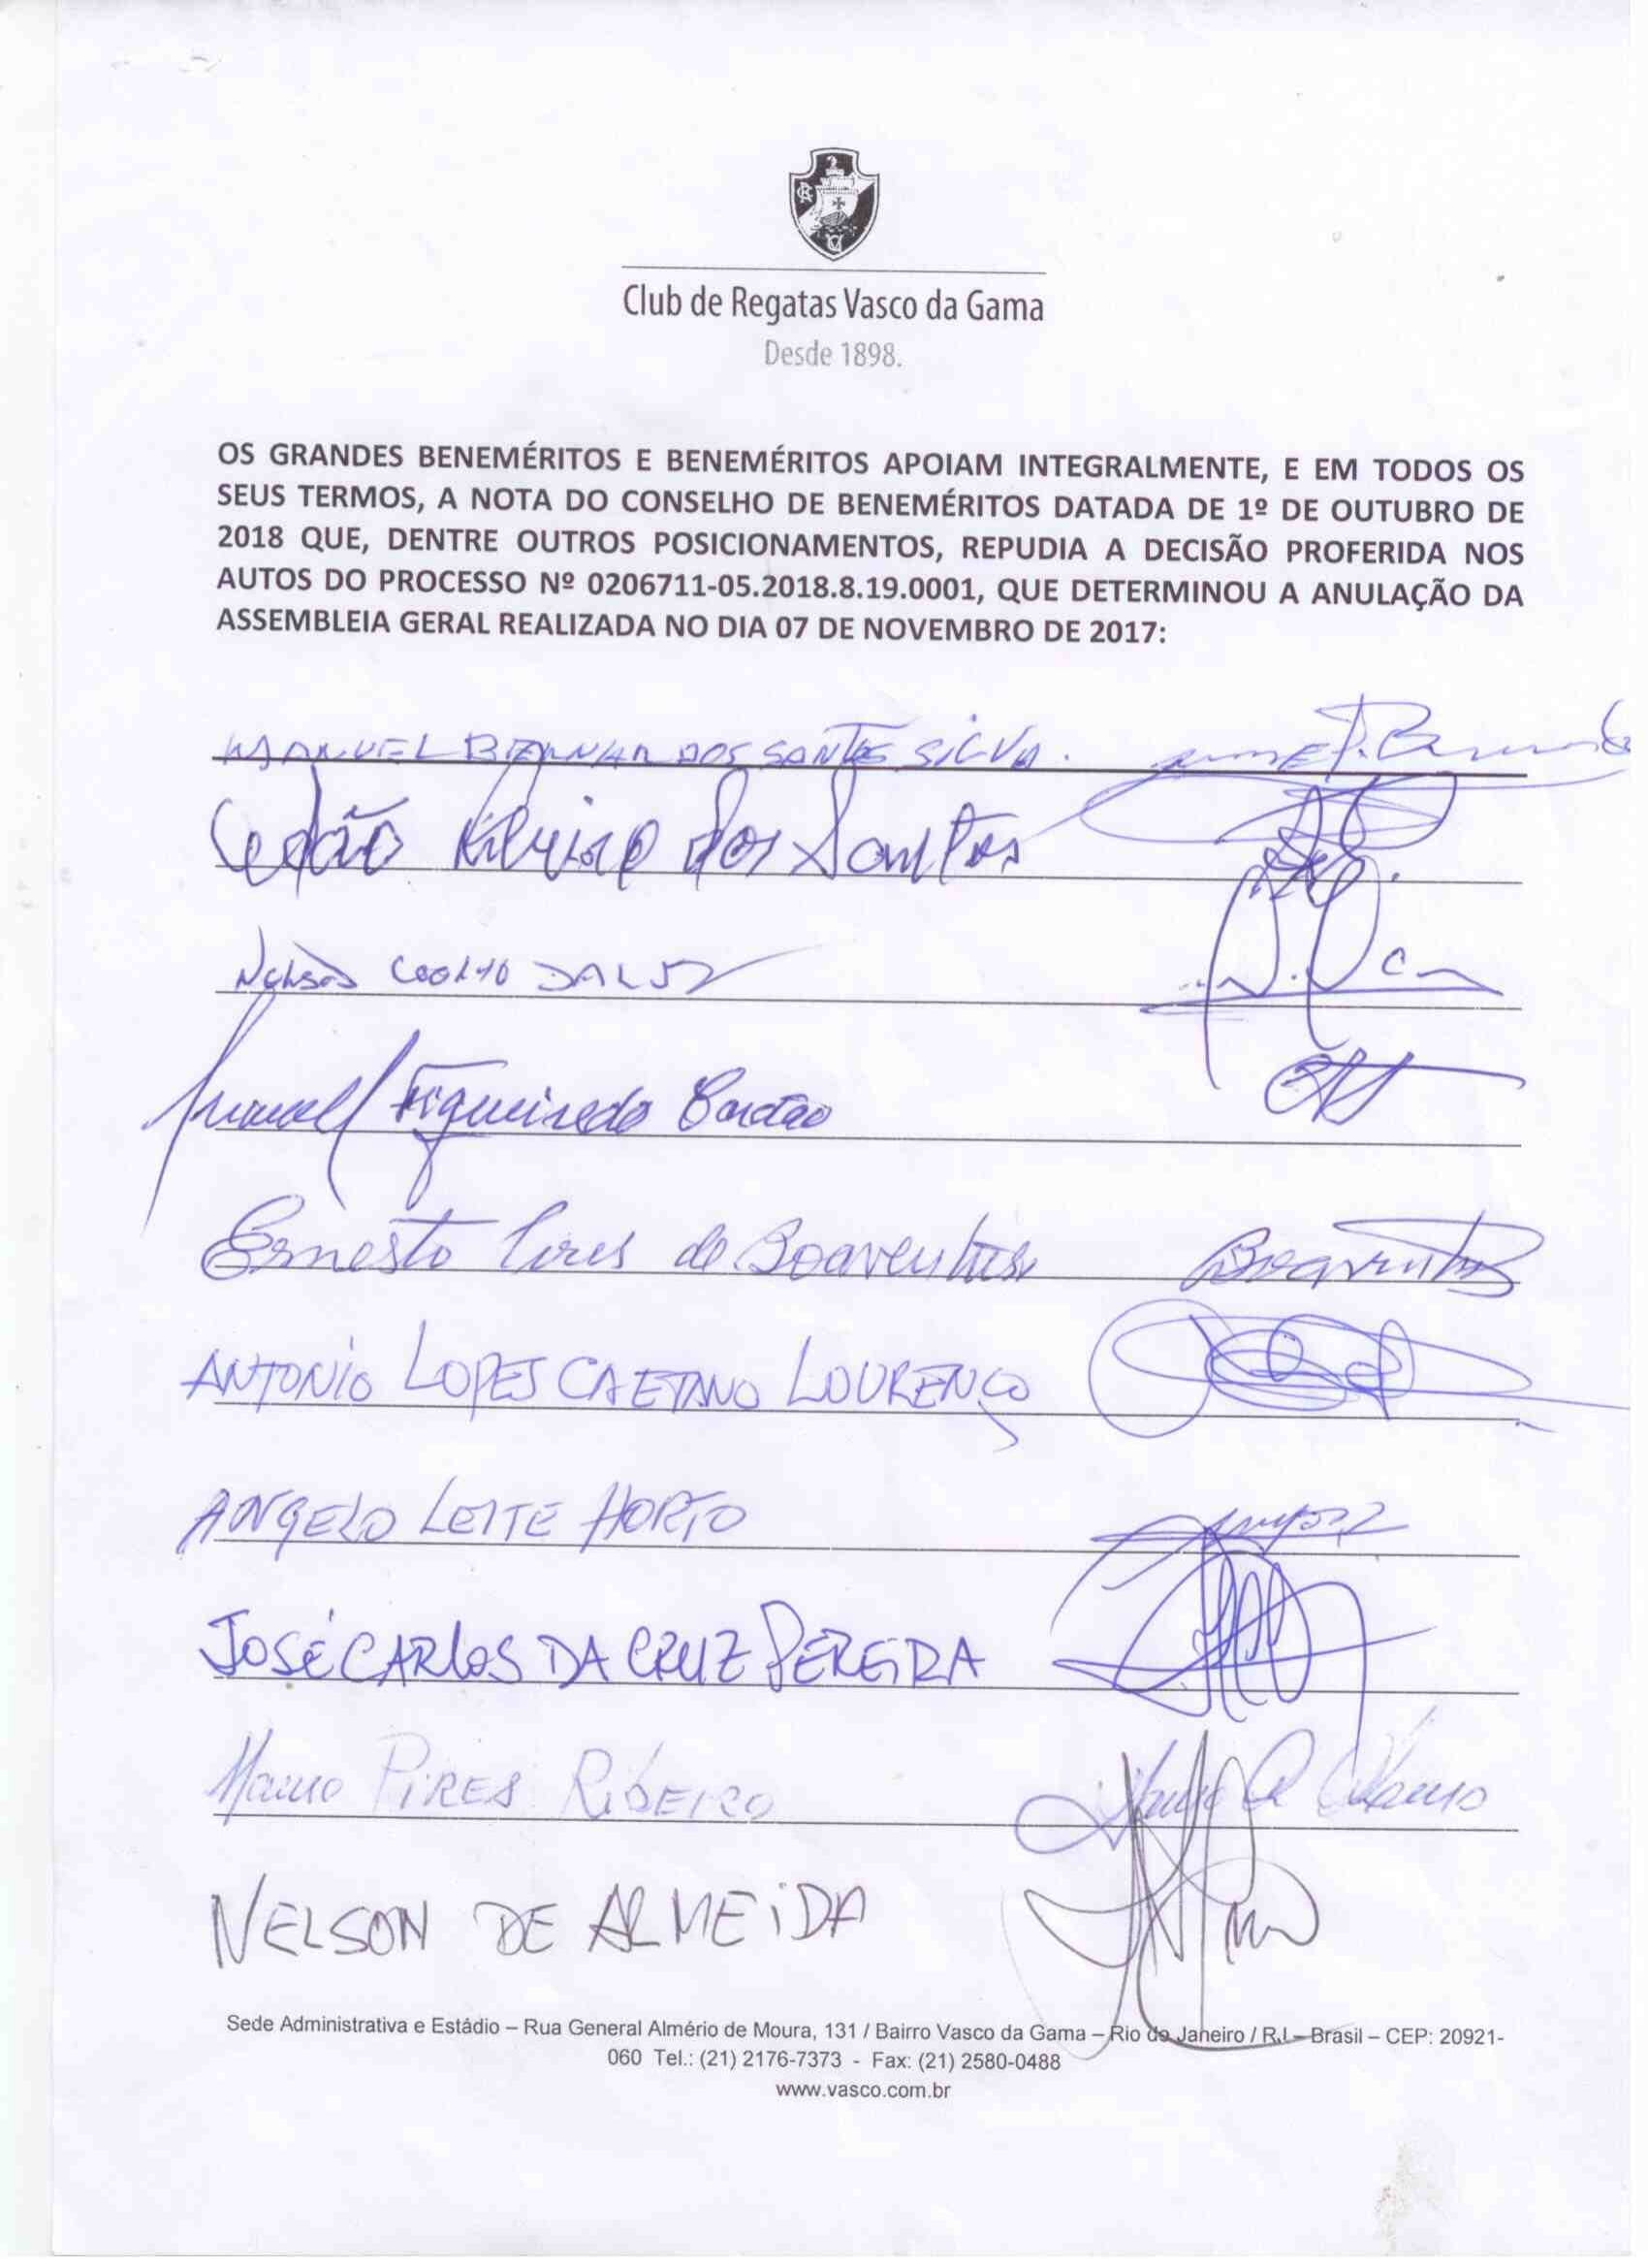 Club de Regatas Vasco da Gama
Desde 1898.
OS GRANDES BENEMÉRITOS E BENEMÉRITOS APOIAM INTEGRALMENTE, E EM TODOS OS
SEUS TERMOS, A NOTA DO CONSELHO DE BENEMÉRITOS DATADA DE 1º DE OUTUBRO DE
2018 QUE, DENTRE OUTROS POSICIONAMENTOS, REPUDIA A DECISÃO PROFERIDA NOS
AUTOS DO PROCESSO Nº 0206711-05.2018.8.19.0001, QUE DETERMINOU A ANULAÇÃO DA
ASSEMBLEIA GERAL REALIZADA NO DIA 07 DE NOVEMBRO DE 2017:
MANUEL SANTOS SILVA.
dos Santos
Nelson Coelho
Manuel Figueiredo
Ernesto Pires de Boaventura Boaventura
ANTONIO LOPES CAETANO LOURENÇO
ANGELO LEITE HORTO
JOSÉ CARLOS DA CRUZ PEREIRA
PIRES RIBEIRO
NELSON DE ALMEIDA
Sede Administrativa e Estádio – Rua General Almério de Moura, 131 / Bairro Vasco da Gama – Rio de Janeiro / RJ – Brasil – CEP: 20921-
060 Tel.: (21) 2176-7373 - Fax: (21) 2580-0488
www.vasco.com.br